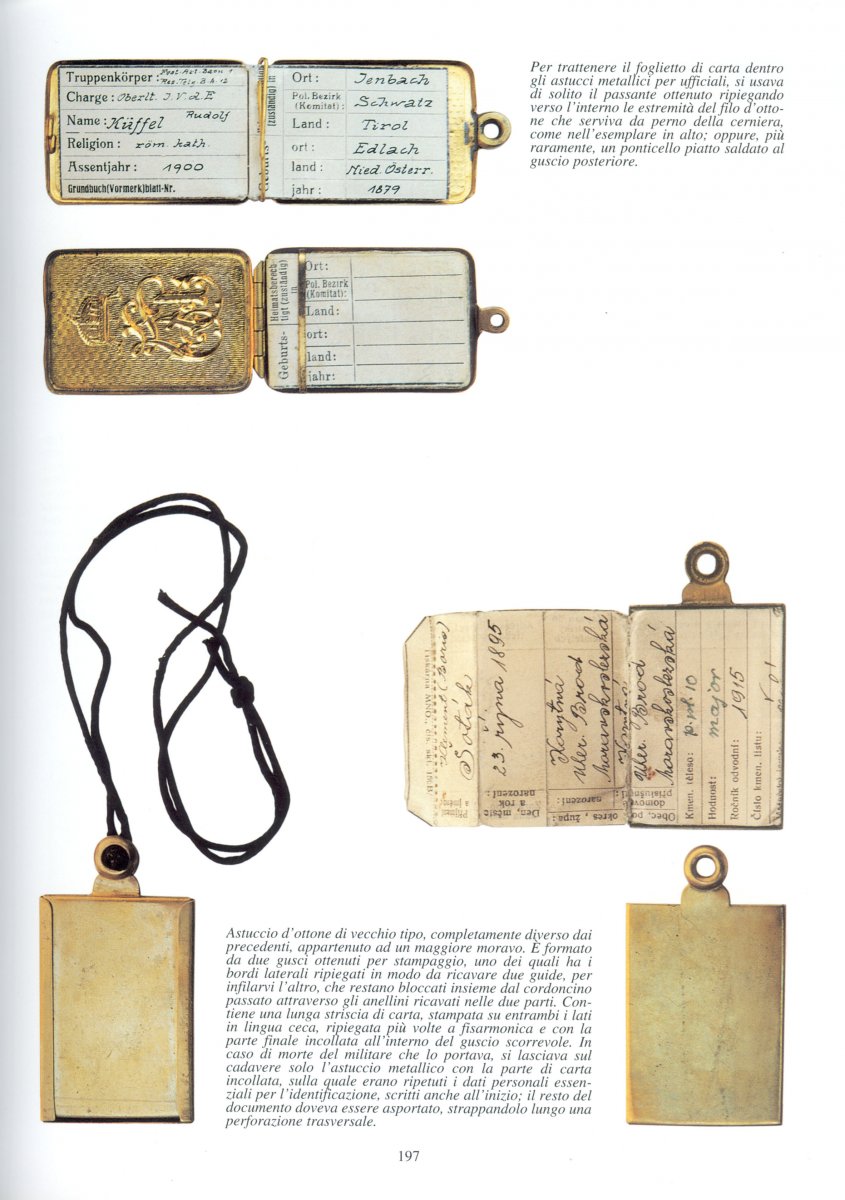 Per trattenere il foglietto di carta dentro
gli astucci metallici per ufficiali, si usava
di solito il passante ottenuto ripiegando
verso l'interno le estremità del filo d'otto-
ne che serviva da perno della cerniera,
come nell'esemplare in alto; oppure, più
raramente, un ponticello piatto saldato al
guscio posteriore.
Truppenkörper:
Charge: Oberlt. I. V. d. E
Name: Küffel Rudolf
Religion: röm. kath.
Assentjahr: 1900
Grundbuch(Vormerk)blatt-Nr.
(zuständig) in
Geburts
Ort: Jenbach
Pol. Bezirk
(Komitat): Schwatz
Land: Tirol
ort: Edlach
land: Nied. Österr.
jahr: 1879
Heimatsberech-
tigt (zuständig)
in
Geburts-
Ort:
Pol. Bezirk
(Komitat):
Land:
ort:
land:
jahr:
Klement (Boris)
Soták
23. října 1895
Den, měsíc
a rok
narození:
Korytná
Uher. Brod
moravskoslezská
okres, župa:
narození:
Uher. Brod
moravskoslezská
Obec,
domovsk
příslušnos
Kmen. těleso: p. pl. 10
Hodnost: major
Ročník odvodní: 1915
Číslo kmen. listu:
Astuccio d'ottone di vecchio tipo, completamente diverso dai
precedenti, appartenuto ad un maggiore moravo. È formato
da due gusci ottenuti per stampaggio, uno dei quali ha i
bordi laterali ripiegati in modo da ricavare due guide, per
infilarvi l'altro, che restano bloccati insieme dal cordoncino
passato attraverso gli anellini ricavati nelle due parti. Con-
tiene una lunga striscia di carta, stampata su entrambi i lati
in lingua ceca, ripiegata più volte a fisarmonica e con la
parte finale incollata all'interno del guscio scorrevole. In
caso di morte del militare che lo portava, si lasciava sul
cadavere solo l'astuccio metallico con la parte di carta
incollata, sulla quale erano ripetuti i dati personali essen-
ziali per l'identificazione, scritti anche all'inizio; il resto del
documento doveva essere asportato, strappandolo lungo una
perforazione trasversale.
197